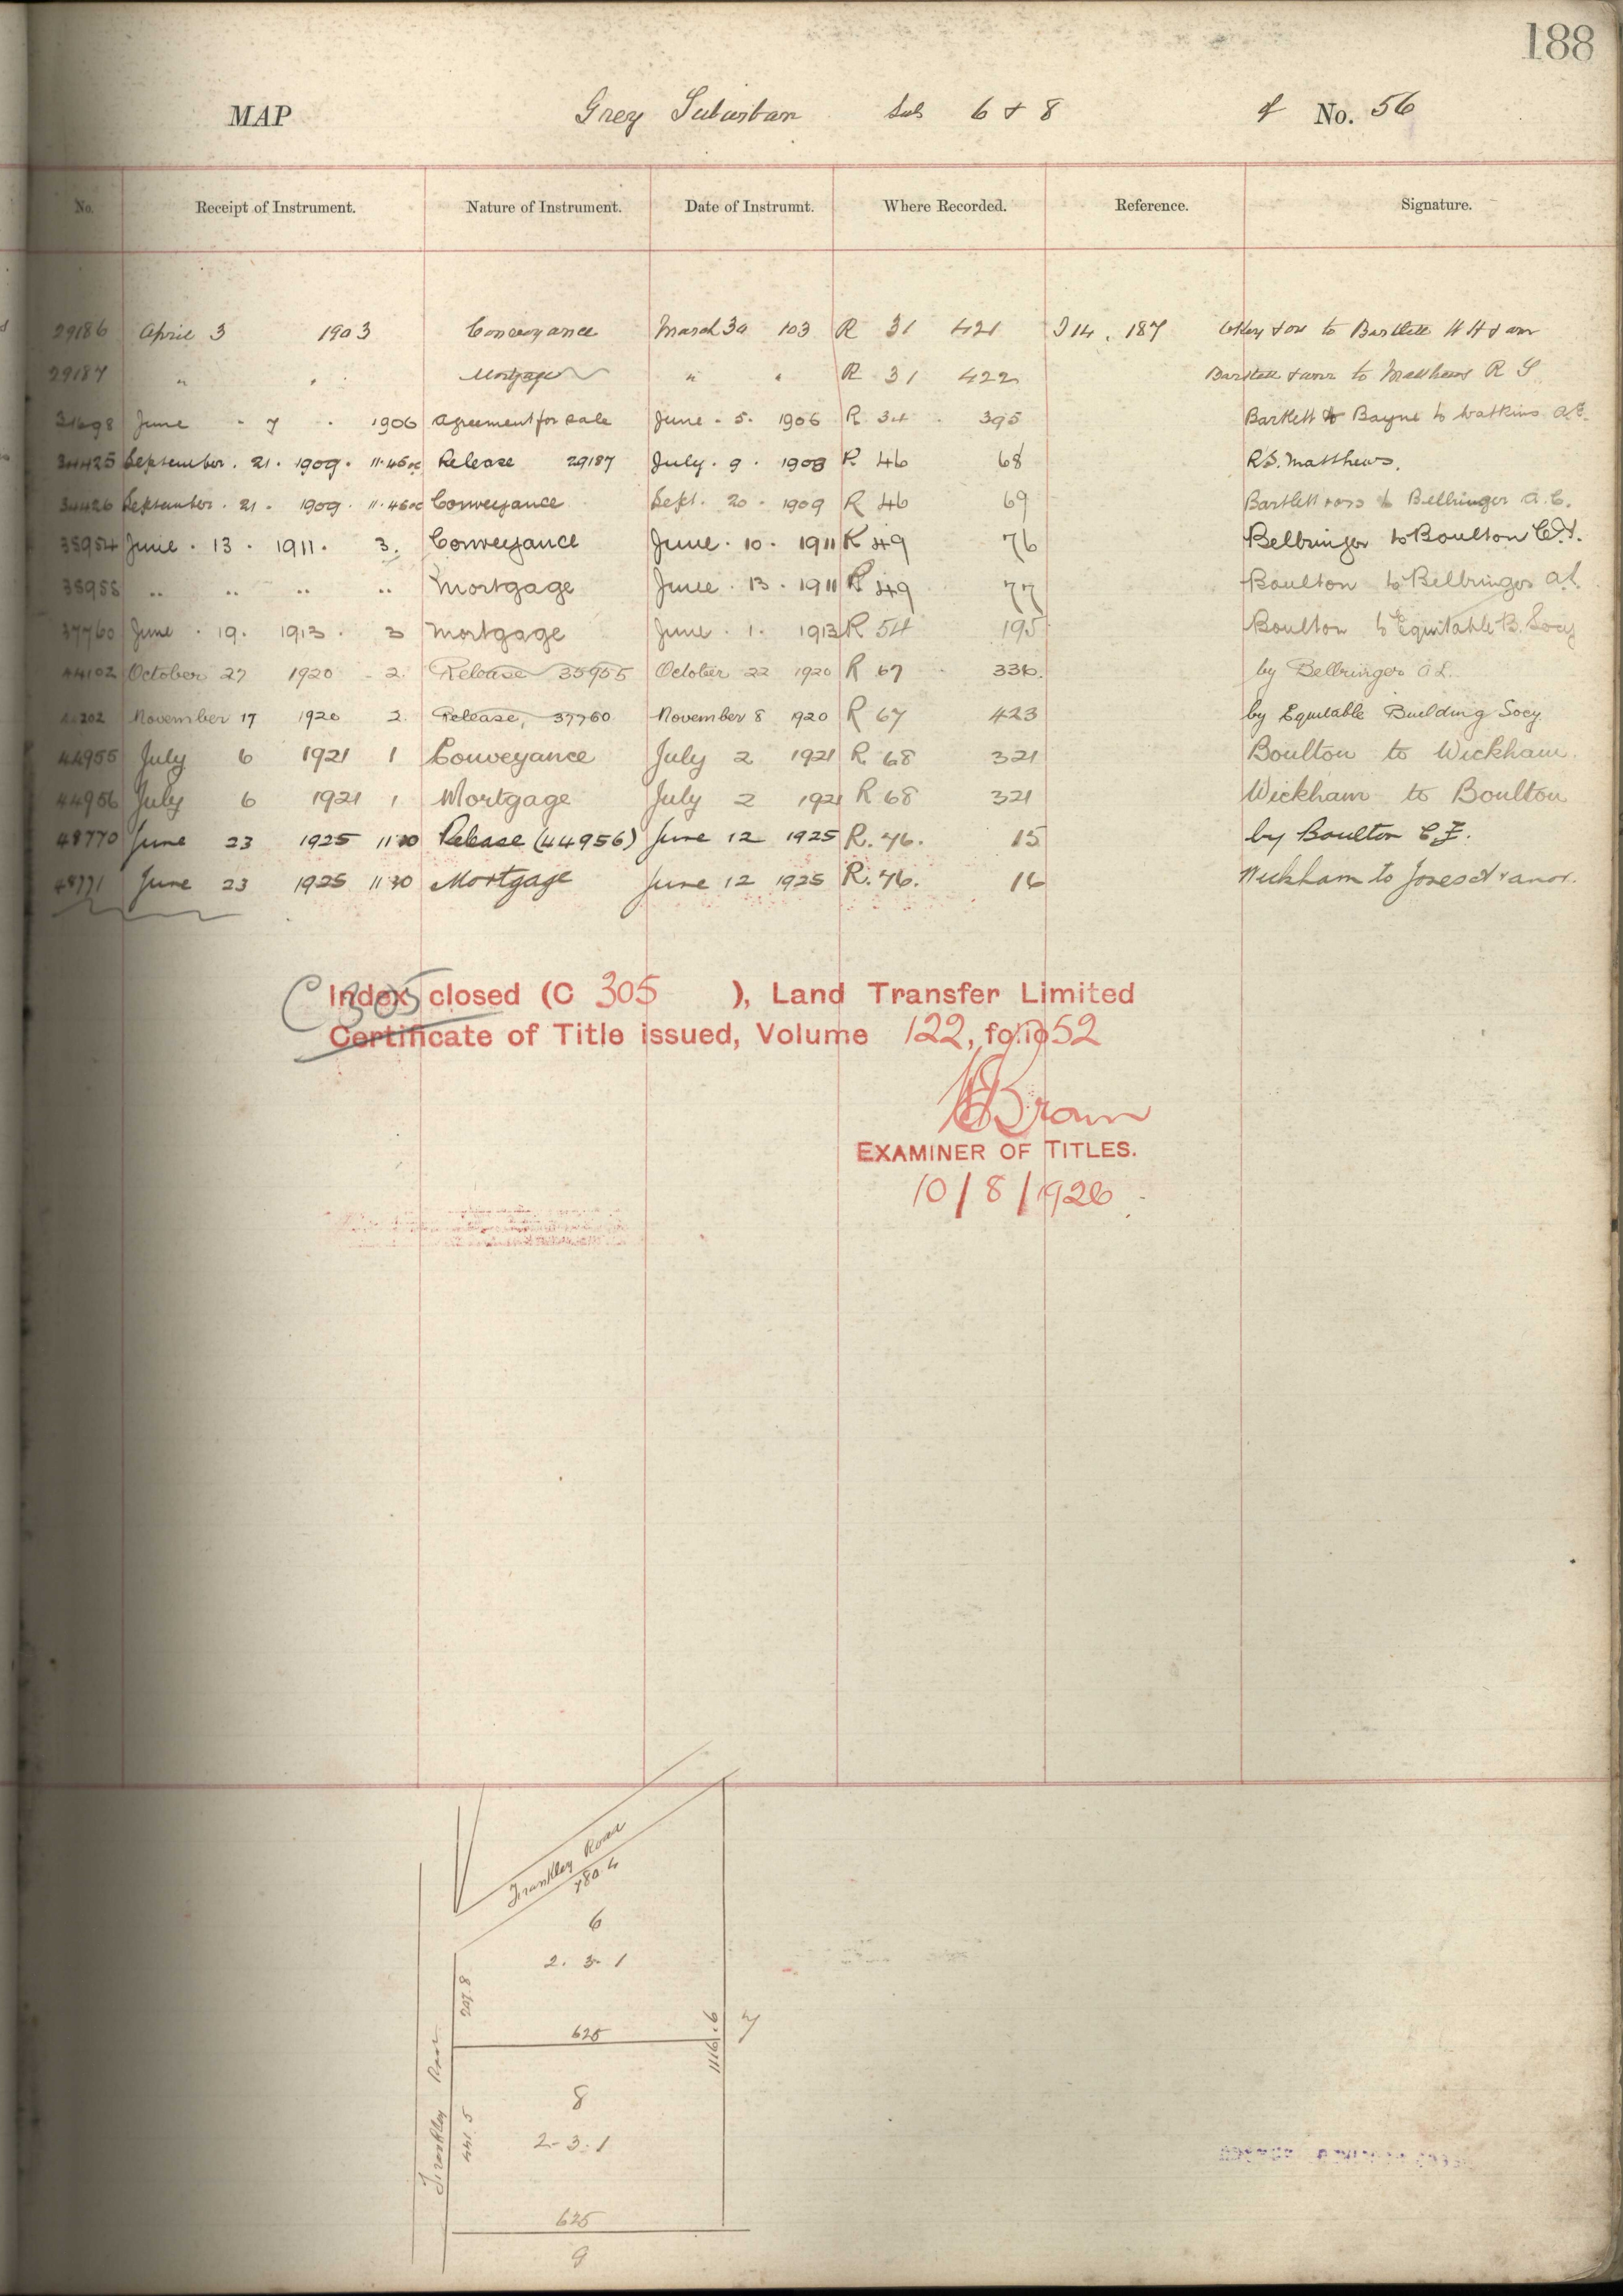 188
MAP Grey Suburban Sub 6 & 8 of No. 56
No. Receipt of Instrument. Nature of Instrument. Date of Instrumnt. Where Recorded. Reference. Signature.
29186 April 3 1903 Conveyance March 30 103 R 31 421 I 14. 187 to Bartlett
29187 " " Mortgage " " R 31 422 to Matthews R S
June 7 1906 Agreement for Sale June 5. 1906 R 34 395 Bartlett to Bayne to Watkins
34425 September. 21. 1909. 11.45 Release 29187 July. 9. 1909 R 46 68 R.S. Matthews.
34426 September. 21. 1909. 11.45 Conveyance Sept. 20. 1909 R 46 69 Bartlett to Bellringer A.C.
35954 June. 13. 1911. 3. Conveyance June. 10. 1911 R 49 76 Bellringer to Boulton
35955 .. .. .. .. Mortgage June. 13. 1911 R 49 77 Boulton to Bellringer
37760 June. 19. 1913. 3 Mortgage June. 1. 1913 R 54 195 Boulton to Equitable B. Socy
44102 October 27 1920 2. Release 35955 October 22 1920 R 67 336. by Bellringer
November 17 1920 2. Release, 37760 November 8 1920 R 67 423 by Equitable Building Socy.
44955 July 6 1921 1 Conveyance July 2 1921 R. 68 321 Boulton to Wickham.
44956 July 6 1921 1 Mortgage July 2 1921 R 68 321 Wickham to Boulton
48770 June 23 1925 11.30 Release (44956) June 12 1925 R. 76. 15 by Boulton
48771 June 23 1925 11.30 Mortgage June 12 1925 R. 76. 16 Wickham to Jones & anor.
C 305
Index closed (C 305 ), Land Transfer Limited
Certificate of Title issued, Volume 122, folio 52
Brown
EXAMINER OF TITLES.
10/8/1926
Frankley Road
780.4
6
2. 3. 1
207.8
625
7
1116.6
Frankley Road
8
441.5
2-3.1
625
9